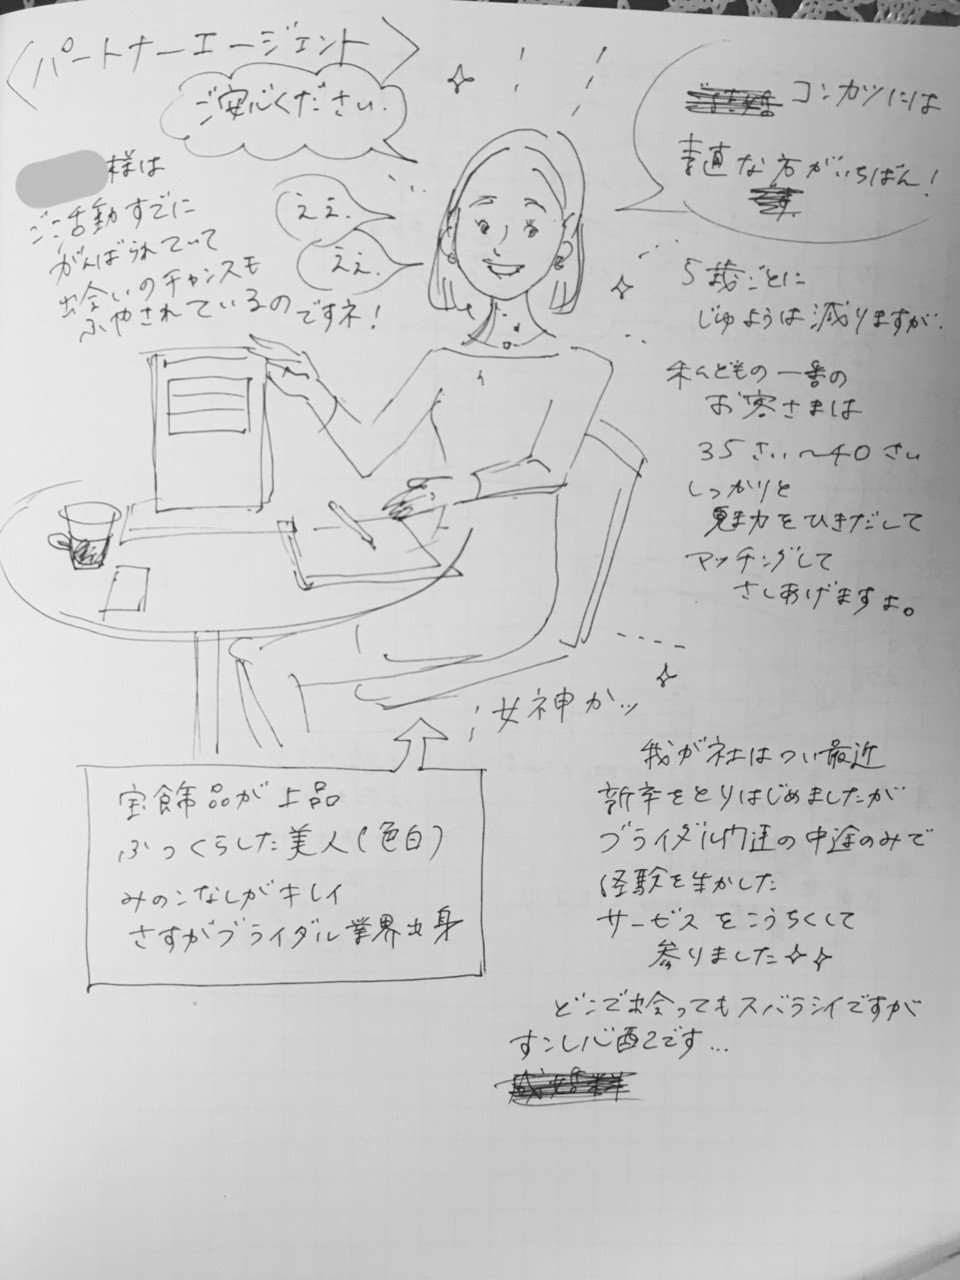 〈パートナーエージェント〉
ご安心ください.
様は
ご活動すでに
がんばられていて
出会いのチャンスも
ふやされているの
ですネ!
ええ.
ええ.
コンカツには
素直な方がいちばん!
5歳ごとに
じゅようは減りますが.
私どもの一番の
お客さまは
35さい〜40さい
しっかりと
魅力をひきだして
マッチングして
さしあげますよ。
女神かッ
宝飾品が上品
ふっくらした美人(色白)
みのこなしがキレイ
さすがブライダル業界出身
我が社はつい最近
新卒をとりはじめましたが
ブライダル関連の中途のみで
経験を生かした
サービスをこうちくして
参りました✧✧
どこで出会ってもスバラシイですが
すこし心配です...